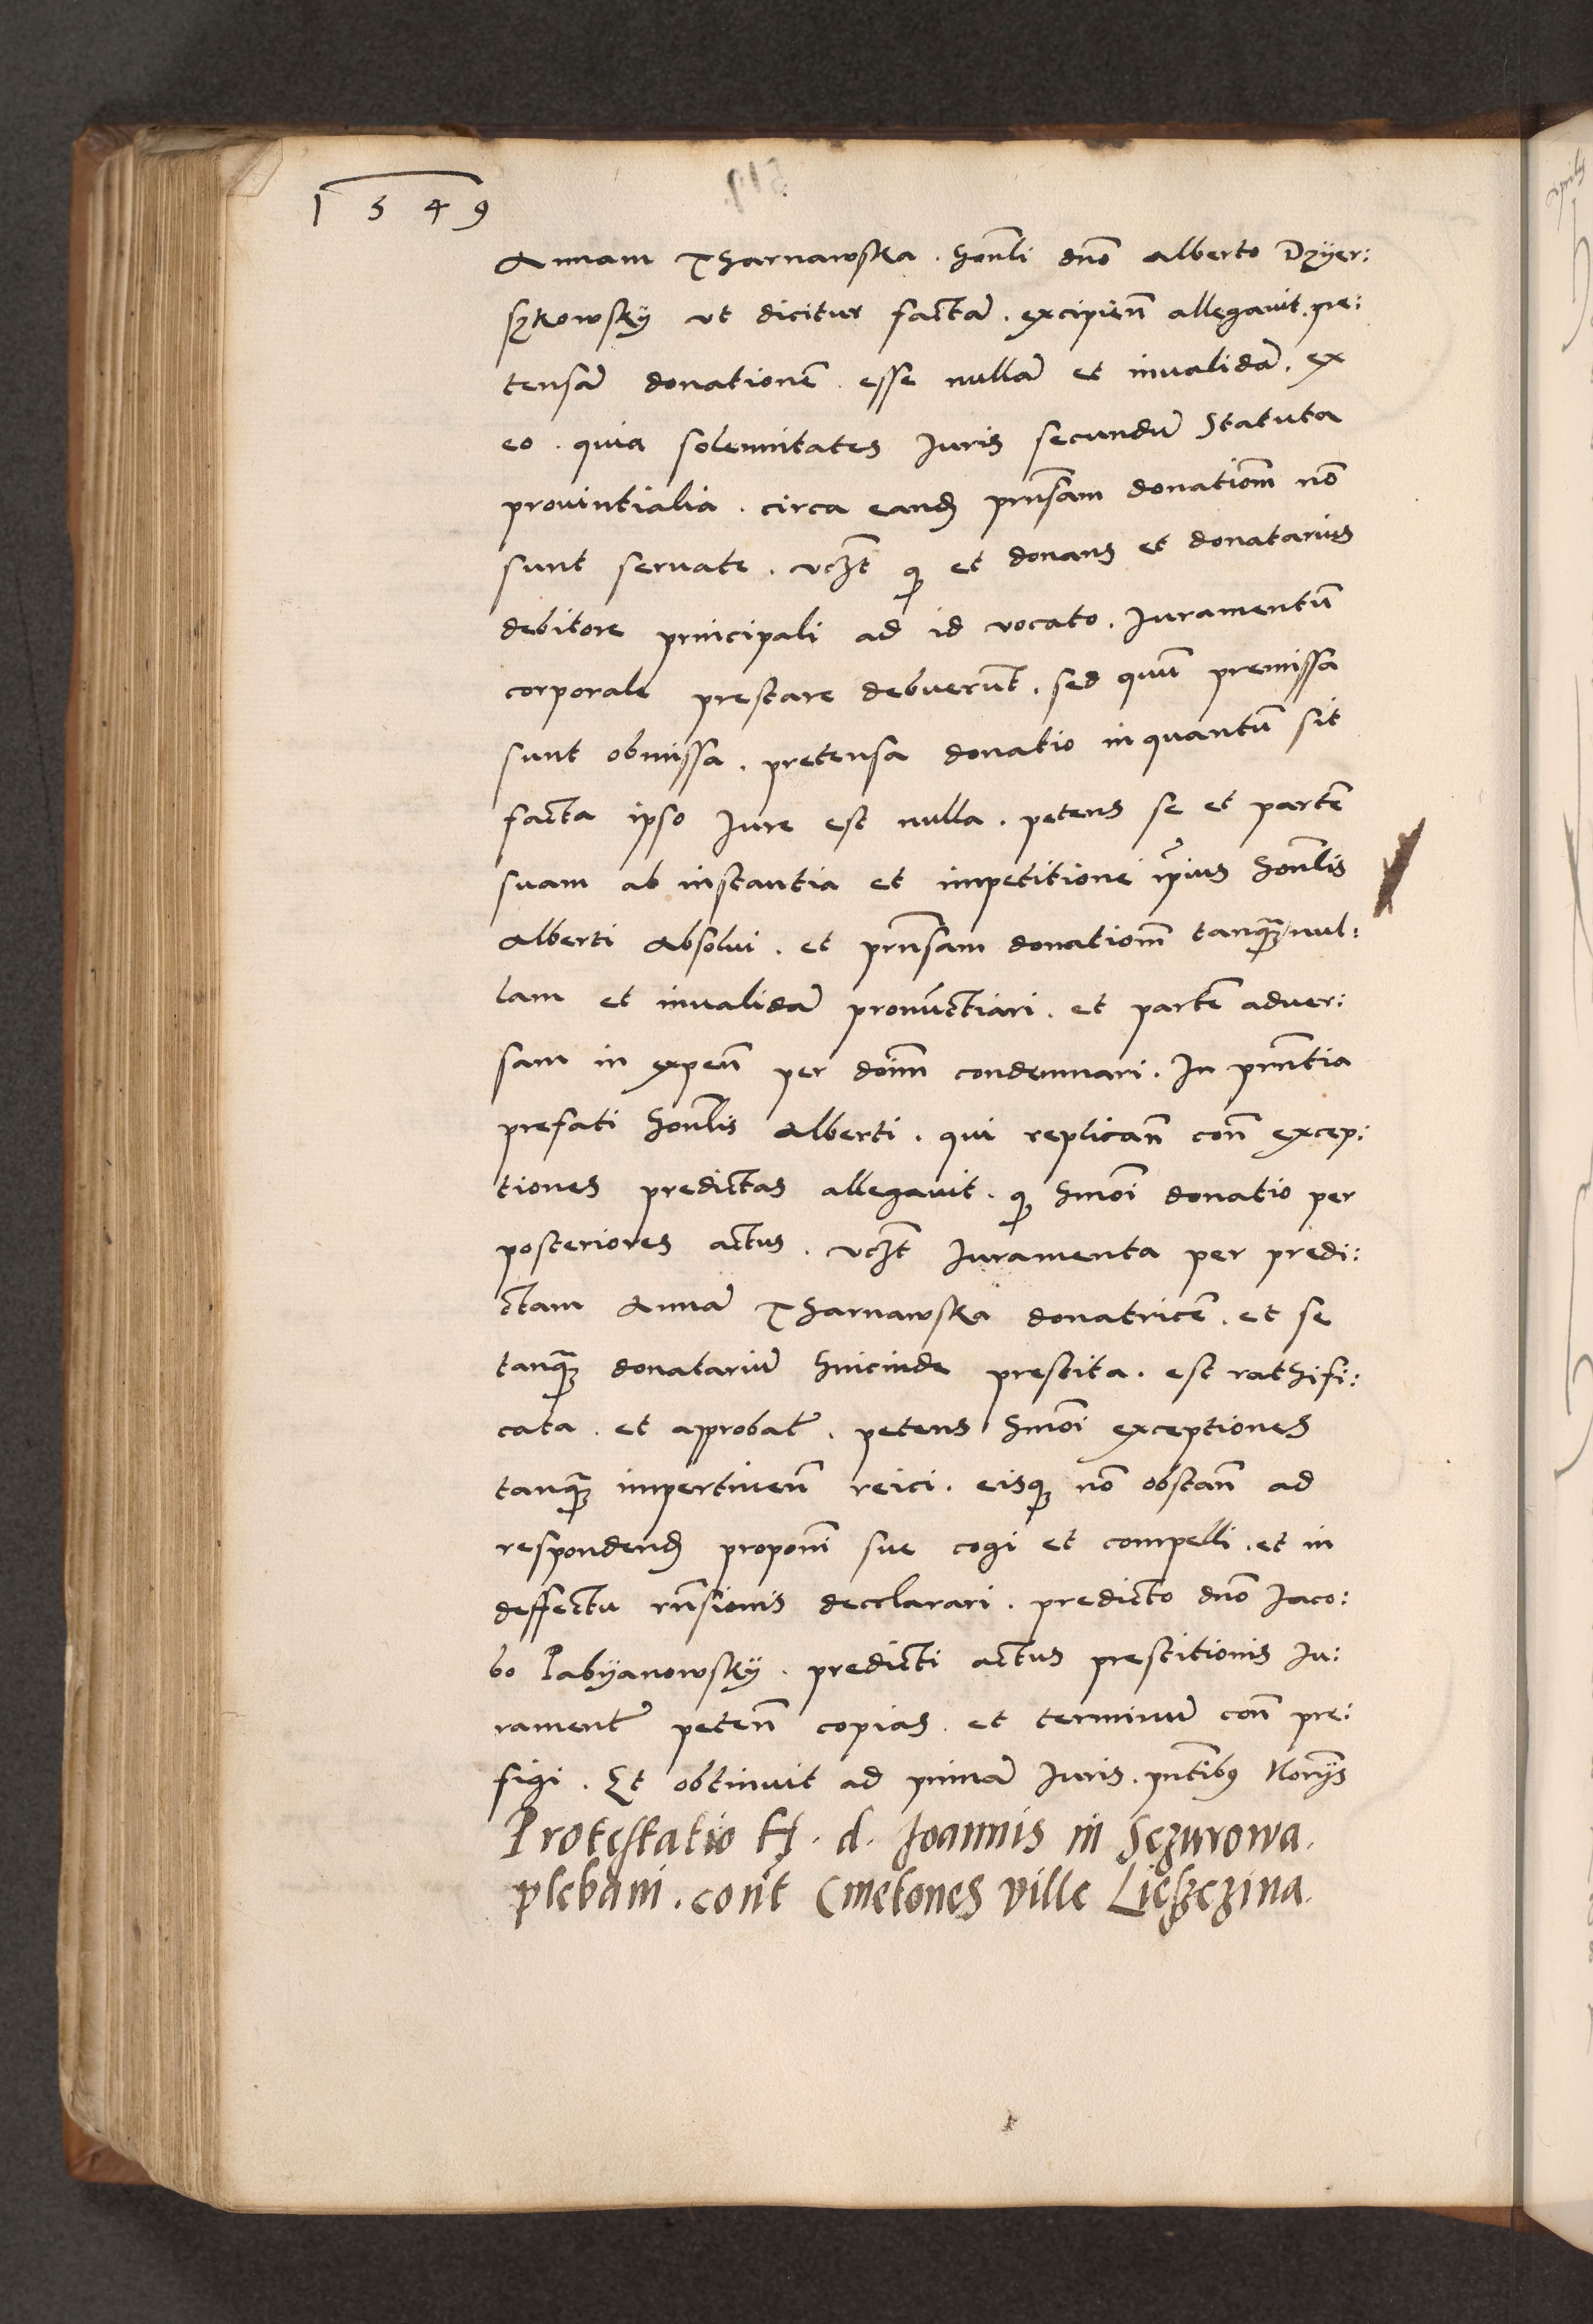 1549
Annam Tharnawska . honli dno Alberto Dzyer:
szkowsky vt dicitur factā . excipien̄ allegauit . pre:
tensā donationē . esse nullā et inualidā . ex
eo . quia solennitates Iuris secundū Statuta
prouintialia . circa eand prn̄sam donatiom̄ nō
sunt seruate . vczt q et donans et donatarius
debitore principali ad id vocato . Iuramentū
corporale prestare debuerūt . sed quū premissa
sunt obmissa . pretensa donatio inquantū sit
facta ipso Iure est nulla . petens se et partē
suam ab instantia et impetitione ipius honlis
Alberti Absolui . et prn̄sam donatiom̄ tanqꝫ nul:
lam et inualidā pronūctiari . et partē aduer:
sam in expen̄ per doim̄ condemnari . In prn̄tia
prefati honlis Alberti . qui replican̄ con̄ excep:
tiones predictas allegauit . q hmōi donatio per
posteriores actus . vczt Iuramenta per predi:
ctam Annā Tharnawska donatricē . et se
tanqꝫ donatariū hincinde prestita . est rathifi:
cata . et approbat . petens hmōi exceptiones
tanqꝫ impertinen̄ reici . eisqꝫ nō obstan̄ ad
respondend proponi sue cogi et compelli . et in
deffectu rn̄sionis decclarari . predicto dno Iaco:
bo Pabyanowsky . predicti actus prestitionis Iu:
rament peten̄ copias . et terminū con̄ pre:
figi . Et obtinuit ad primā Iuris . pn̄tibꝰ Norijs
Protestatio H. d. Joannis in Sczurowa.
plebani . con̄t Cmetones ville Lieszczina.